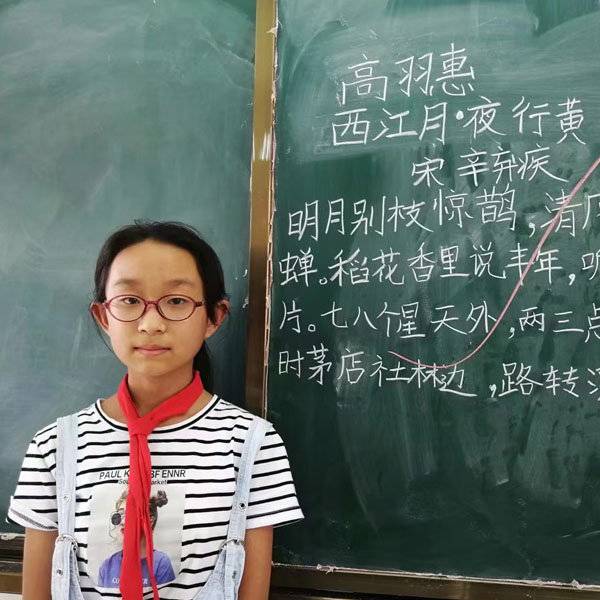 高羽惠
西江月·夜行黄
宋 辛弃疾
明月别枝惊鹊,清
蝉。稻花香里说丰年,听
片。七八个星天外,两三点
时茅店社林边,路转
PAUL BF ENNR